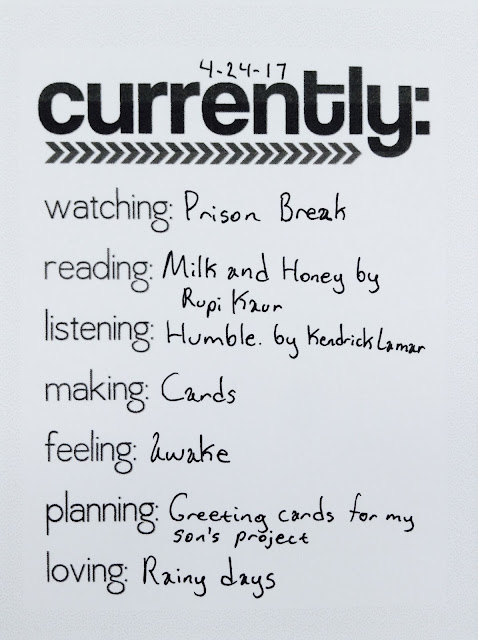 4-24-17
currently:
watching: Prison Break
reading: Milk and Honey by
Rupi Kaur
listening: Humble. by Kendrick Lamar
making: Cards
feeling: Awake
planning: Greeting cards for my
son's project
loving: Rainy days